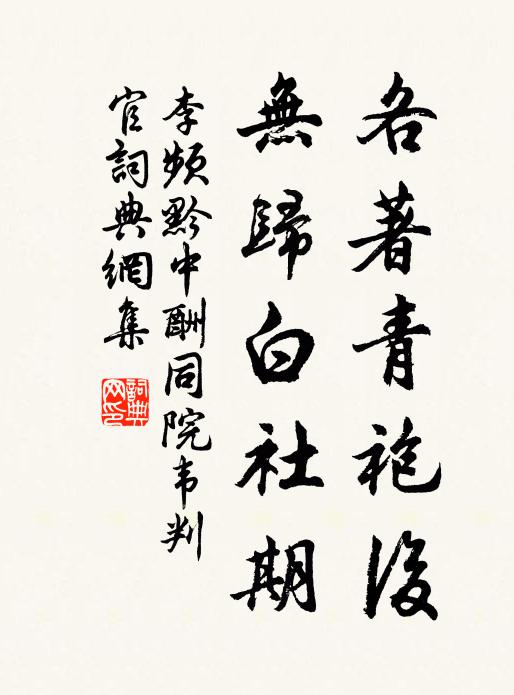 各著青袍後
無歸白社期
李頻黔中酬同院韦判
官詞典網集
詞典
网印